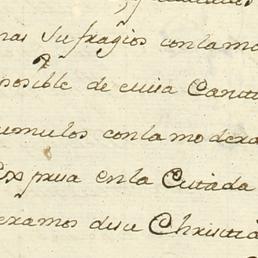 mas Sufragios con la mo
posible de cuia Canti
cumulos con la modera
Expresa en la Citada
eramos de su Christia